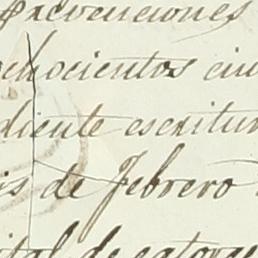 Prevenciones
ochocientos cin
diente escritur
is de Febrero
ital de catorce